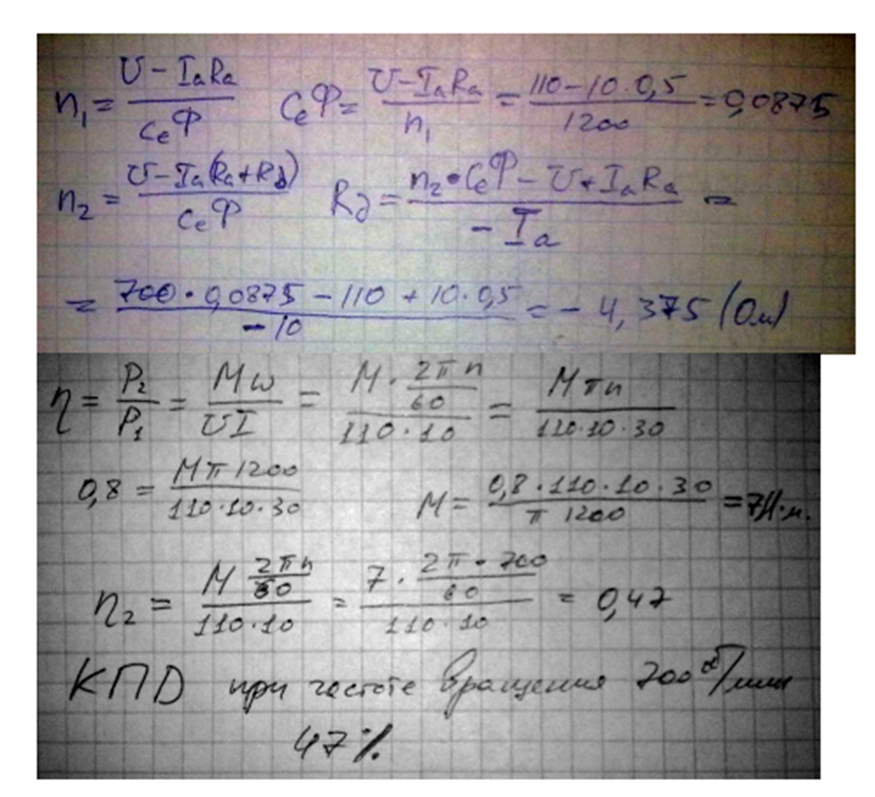 n₁ = (U − IₐRₐ) / (CₑФ)   CₑФ = (U − IₐRₐ) / n₁ = (110 − 10 · 0,5) / 1200 = 0,0875
n₂ = (U − Iₐ(Rₐ + R∂)) / (CₑФ)   R∂ = (n₂ • CₑФ − U + IₐRₐ) / (− Iₐ) =
= (700 • 0,0875 − 110 + 10 · 0,5) / (−10) = − 4,375 (Ом)
η = P₂ / P₁ = Mω / UI = (M · 2πn/60) / (110 · 10) = Mπn / (110·10·30)
0,8 = Mπ 1200 / (110·10·30)   M = (0,8 · 110 · 10 · 30) / (π 1200) = 7 Н·м.
η₂ = (M 2πn/60) / (110·10) = (7 · 2π · 700/60) / (110·10) = 0,47
КПД при частоте вращения 700 об/мин
47%